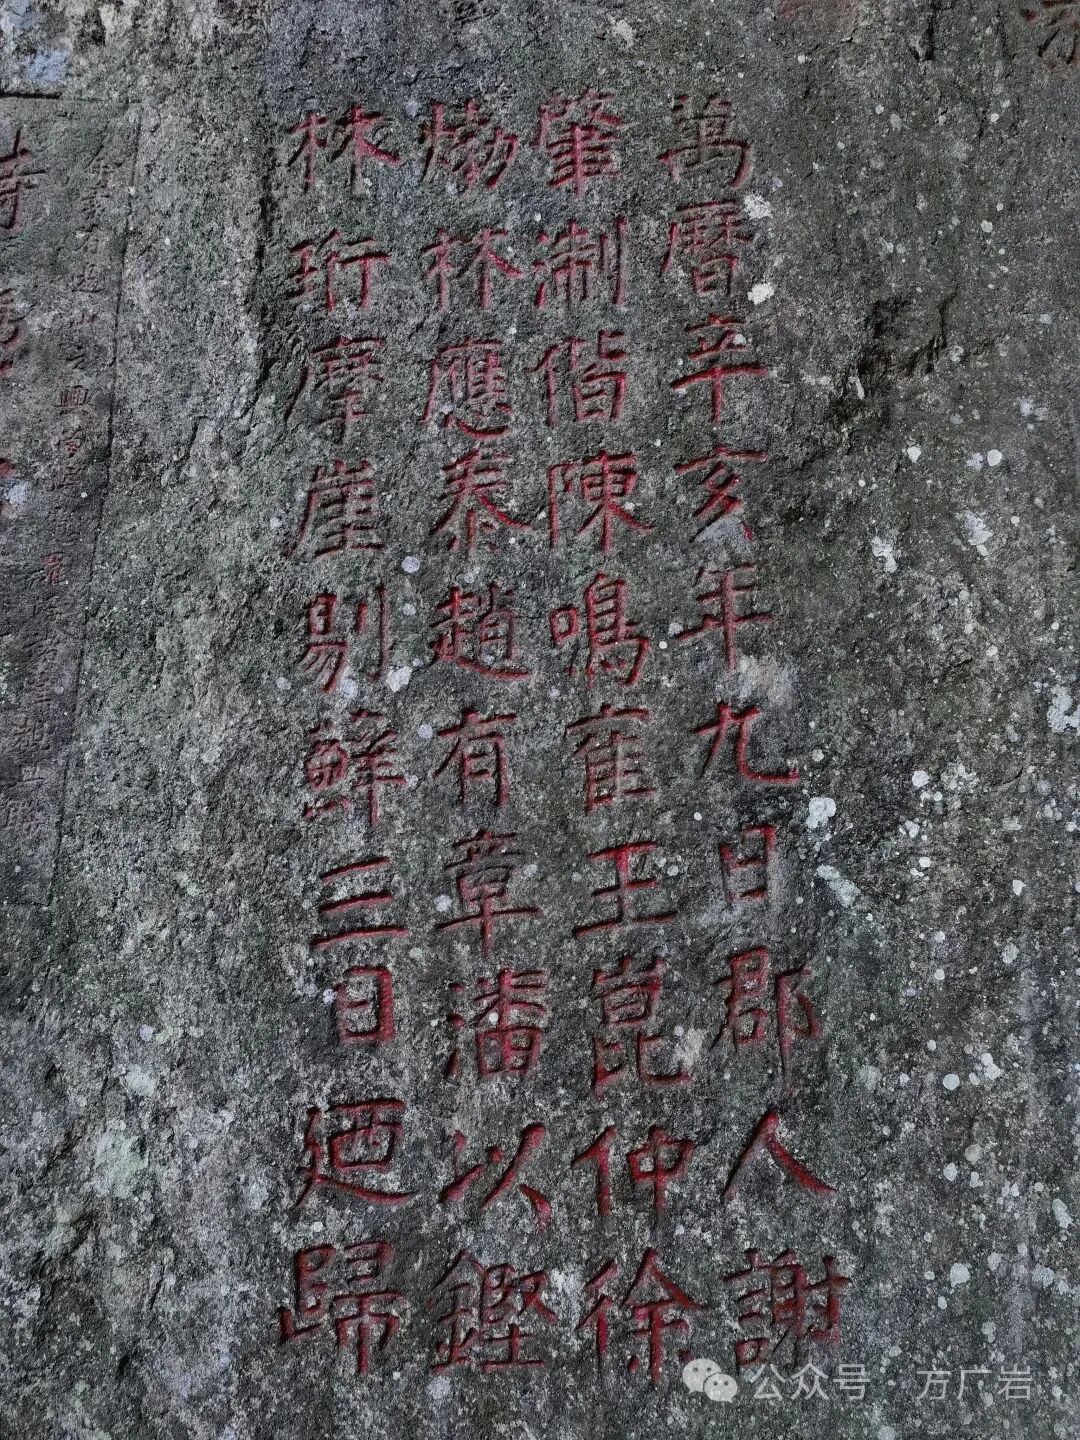 萬曆辛亥年九日郡人謝
肇淛偕陳鳴寉王崑仲徐
𤊹林應泰趙有章潘以鏗
林珩摩崖剔蘚三日廼歸
公众号 方广岩